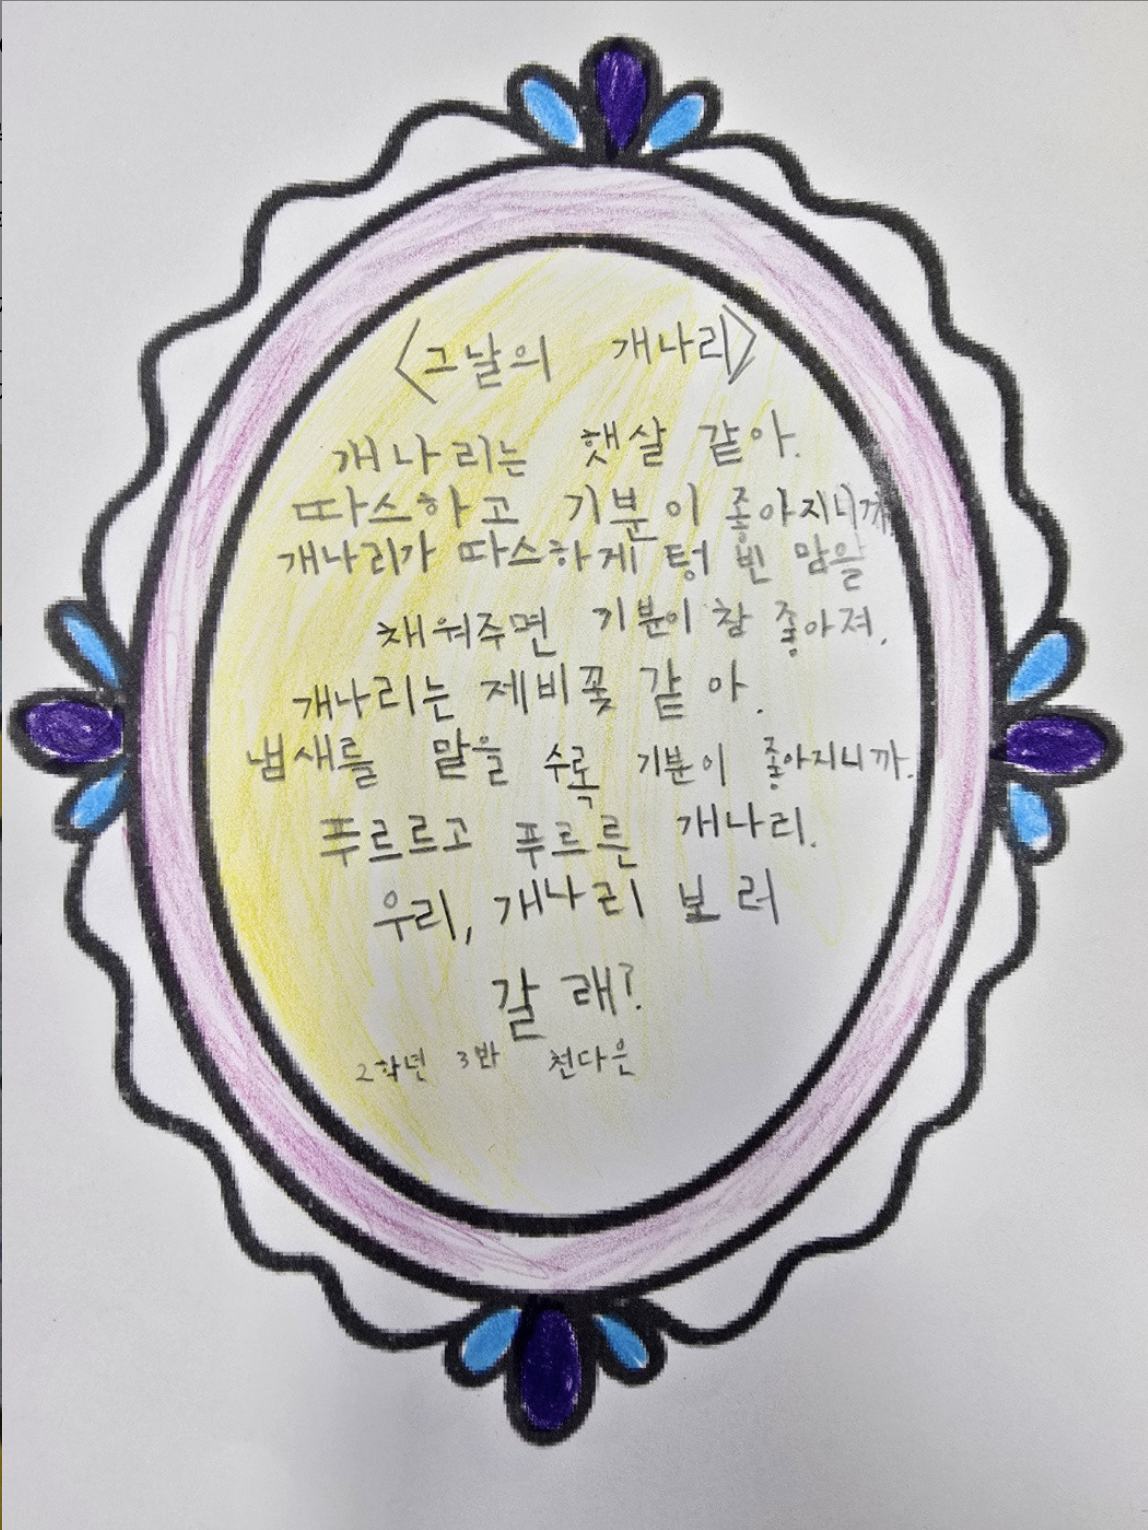 <그날의 개나리>
개나리는 햇살 같아.
따스하고 기분이 좋아지니까
개나리가 따스하게 텅 빈 맘을
채워주면 기분이 참 좋아져.
개나리는 제비꽃 같아.
냄새를 맡을 수록 기분이 좋아지니까.
푸르르고 푸르른 개나리.
우리, 개나리 보러
갈래?
2학년 3반 천다은